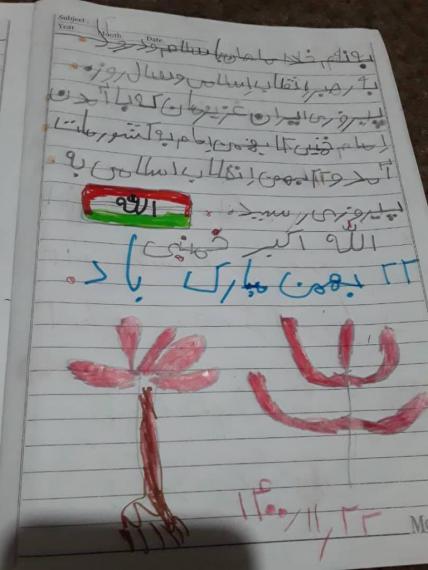 Subject:
Year Month Date
به نام خدا ما با سلام و درود
به رهبر انقلاب اسلامی و سال روز
پیروزی ایران عزیزمان که با آمدن
امام خمینی ۱۲ بهمن امام به کشور ما
آمد و ۲۲ بهمن انقلاب اسلامی به
پیروزی رسید.
الله
الله اکبر خمینی
۲۲ بهمن مبارک باد.
۱۴۰۰/۱۱/۲۲